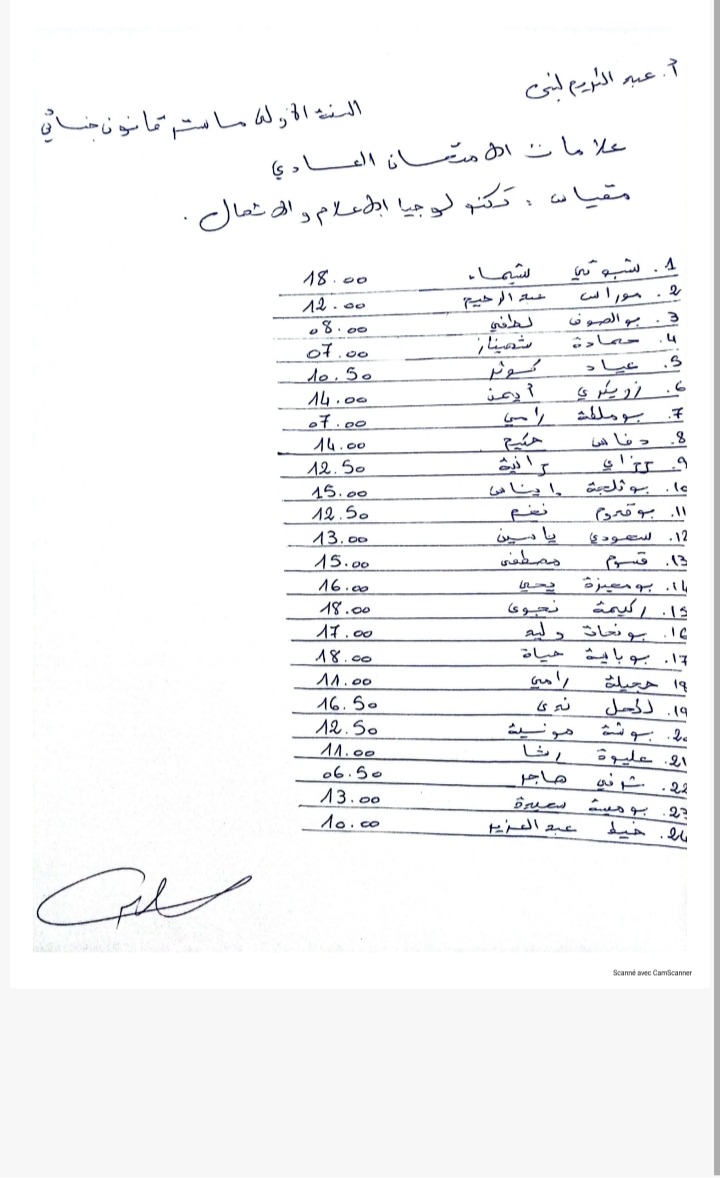 أ. عبد الكريم لبنى
السنة الأولى ماستر قانون جنائي
علامات الامتحان العادي
مقياس : تكنولوجيا الإعلام والاتصال .
1. شبوتي شيماء 18.00
2. موراس عبد الرحيم 12.00
3. بوالصوف لطفي 08.00
4. حمادة شهيناز 07.00
5. عياد كوثر 10.50
6. زويكري أيمن 14.00
7. بوملطة رامي 07.00
8. دفاس حكيم 14.00
9. رانية 12.50
10. بوثلجة إيناس 15.00
11. بوقدوم نغم 12.50
12. سعودي ياسين 13.00
13. قسوم مصطفى 15.00
14. بومعيزة يحيى 16.00
15. ركيمة نجوى 18.00
16. بونحات وليد 17.00
17. بوباية حياة 18.00
18 جعيلة رامي 11.00
19. لكحل ندى 16.50
20. بوشة مونية 12.50
21. عليوة رشا 11.00
22. شرفي هاجر 06.50
23. بومية سميرة 13.00
24. خيط عبد العزيز 10.00
Scanné avec CamScanner